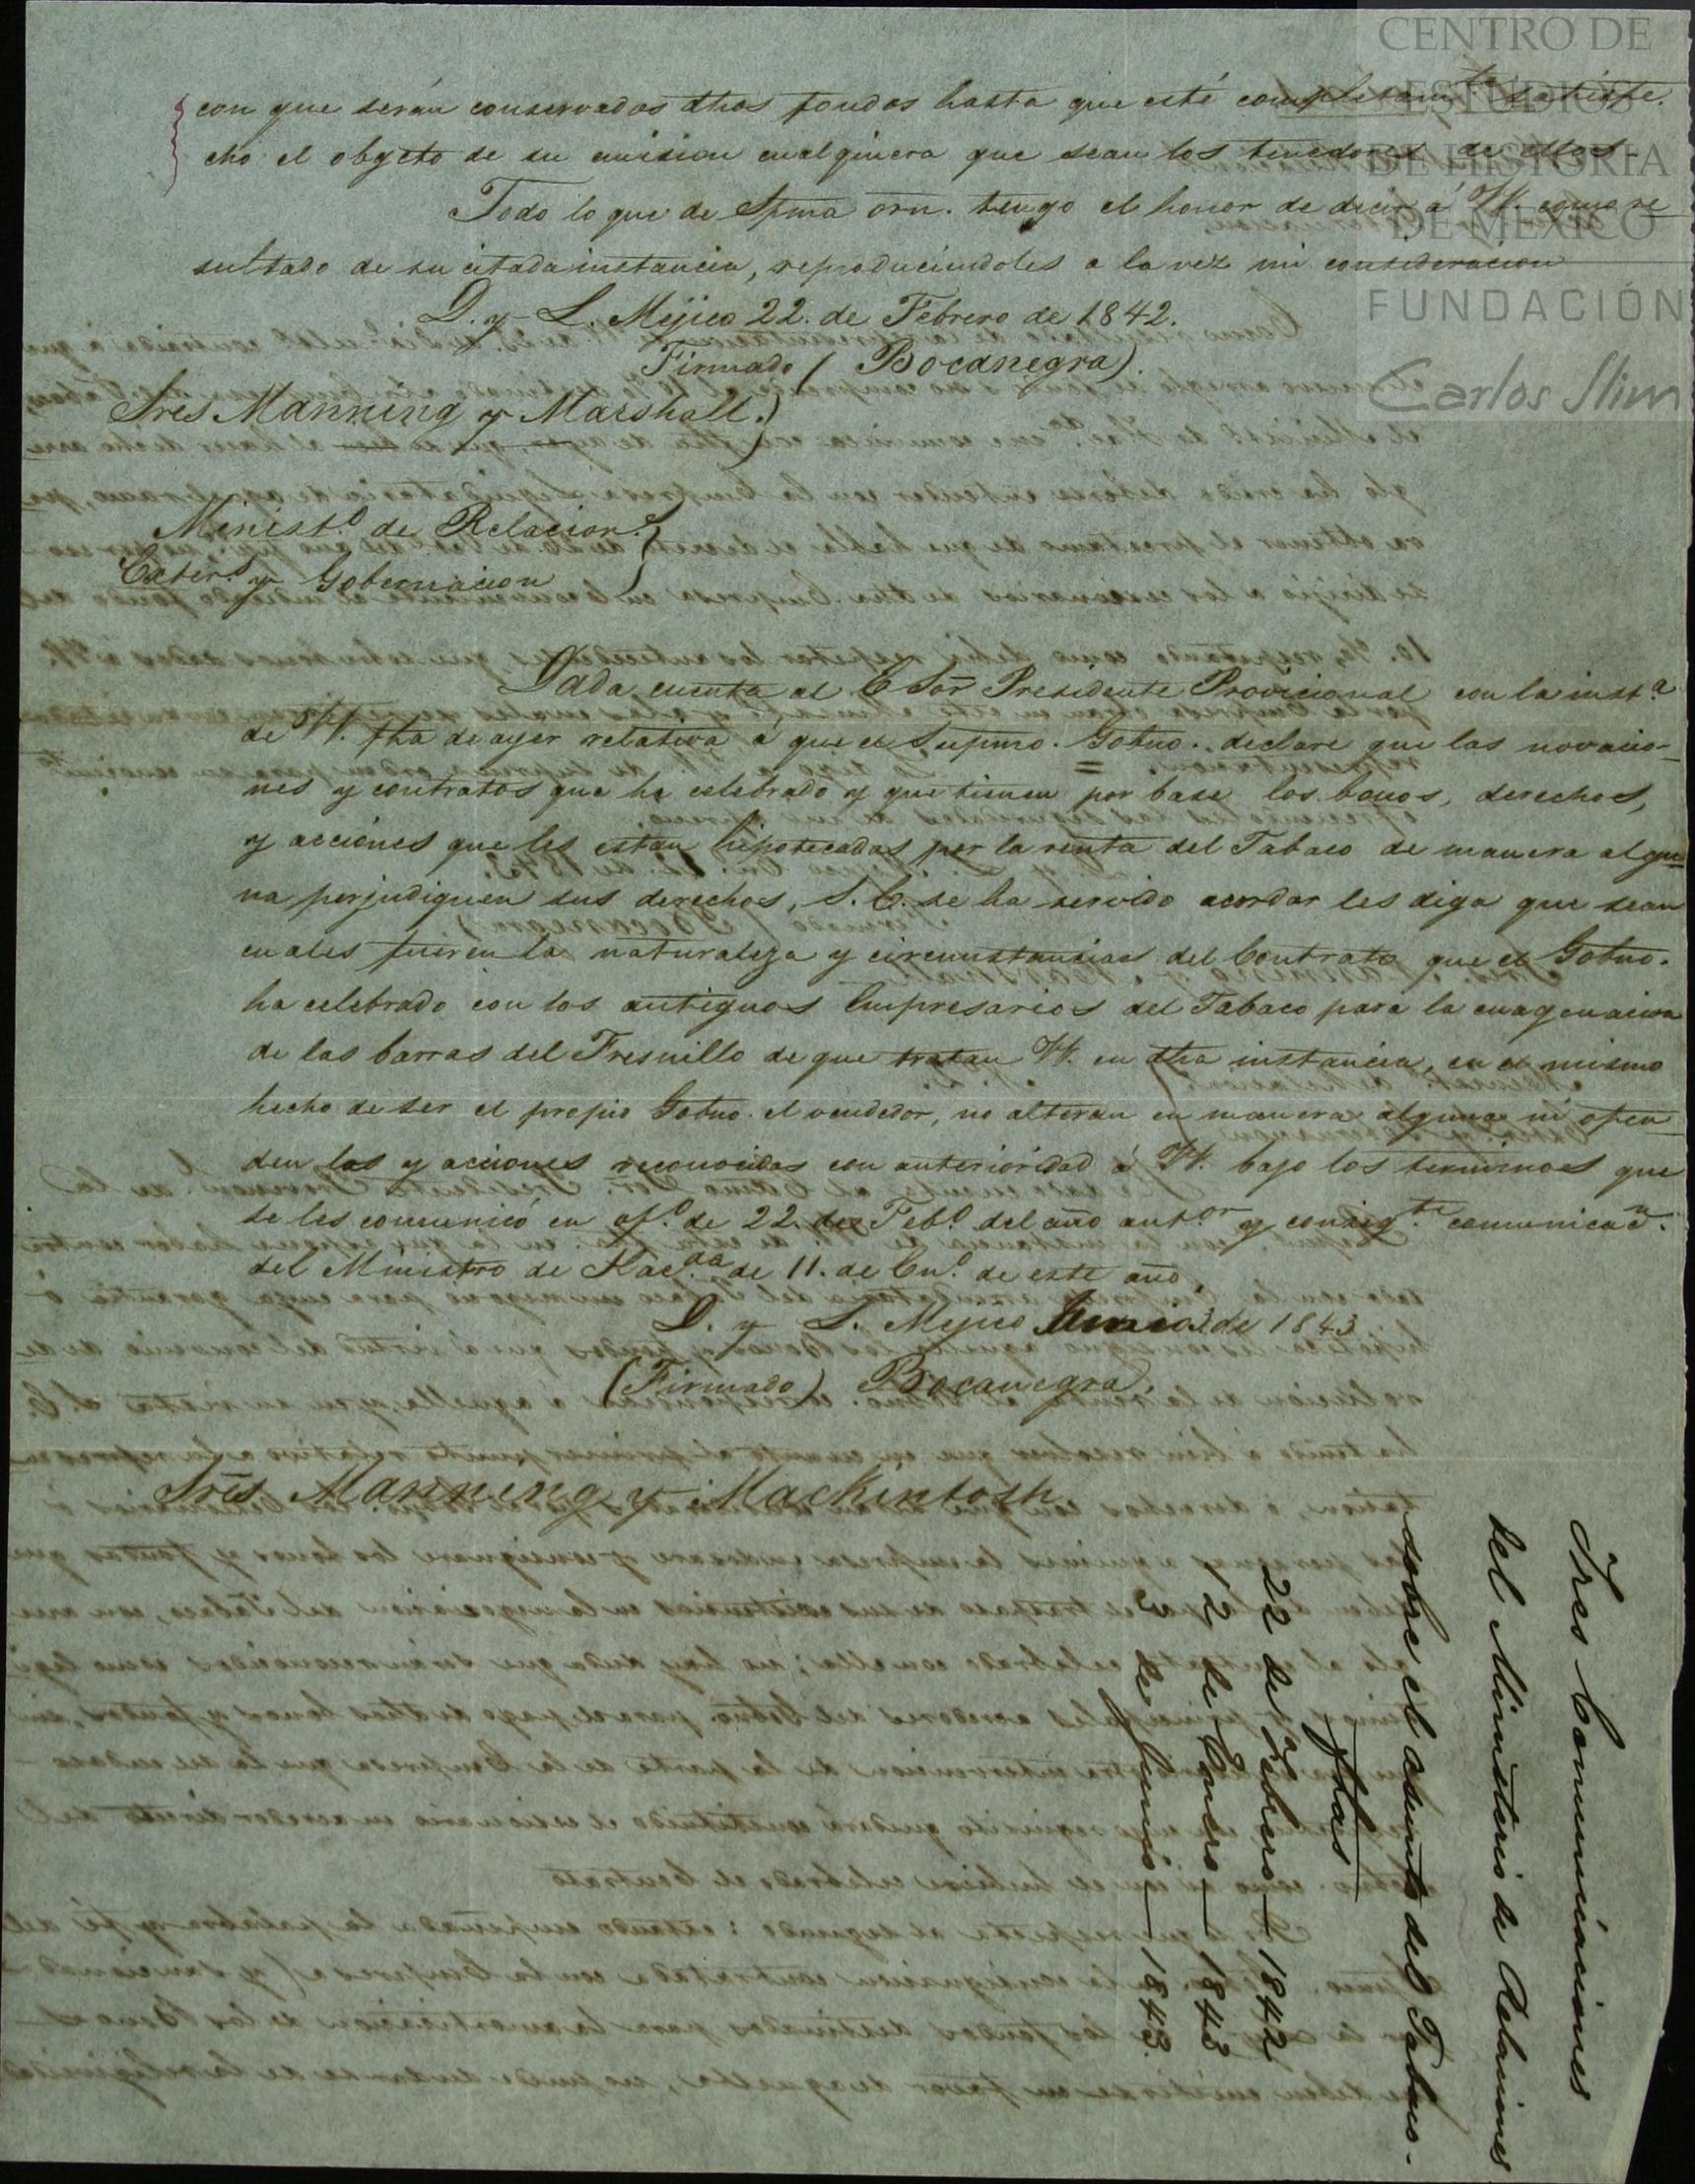 CENTRO DE
ESTUDIOS
DE HISTORIA
DE MEXICO
FUNDACIÓN
Carlos Slim
con que serán conservados dhos fondos hasta que esté completamte. satisfe.
cho el obgeto de su emision cualquiera que sean los tenedores de ellos-
Todo lo que de Spma orn. tengo el honor de decir á VV. como re
sultado de su citada instancia, reproduciendoles a la vez mi consideracion
D. y L. Mejico 22. de Febrero de 1842.
Firmado ( Bocanegra).
Sres Manning y Marshall.)
Minist.o de Relacion.s
Exter.s y Gobernacion
Dada cuenta al E Sor Presidente Provicional con la inst.a
de VV. fha de ayer relativa á que el Supmo. Gobno. declare que las novacio-
nes y contratos que ha celebrado y que tienen por base los bonos, derechos,
y acciónes que les estan hipotecadas por la renta del Tabaco de manera algu=
na perjudiquen sus derechos, S. E. se ha servido acordar les diga que sean
cuales fueren la naturaleza y circunstancias del Contrato que el Gobno.
ha celebrado con los antiguos Empresarios del Tabaco para la enagenacion
de las barras del Fresnillo de que tratan VV. en dha instancia, en el mismo
hecho de ser el propio Gobno. el vendedor, no alteran en manera alguna ni ofen
den las y acciones reconocidas con anterioridad á VV. bajo los terminos que
se les comunicó en of.o de 22 de Feb.o del año ant.or y consig.te comunicac.n
del Ministro de Hac.da de 11. de En.o de este año.
D. y L. Mejico Junio 3 de 1843
(Firmado) Bocanegra.
Sres Manning y Mackintosh.
Tres Comunicaciones
del Ministerio de Relaciones
sobre el asunto del Tabaco.
fhas
22 de Febrero — 1842
12 de Enero — 1843
3 de Junio — 1843.